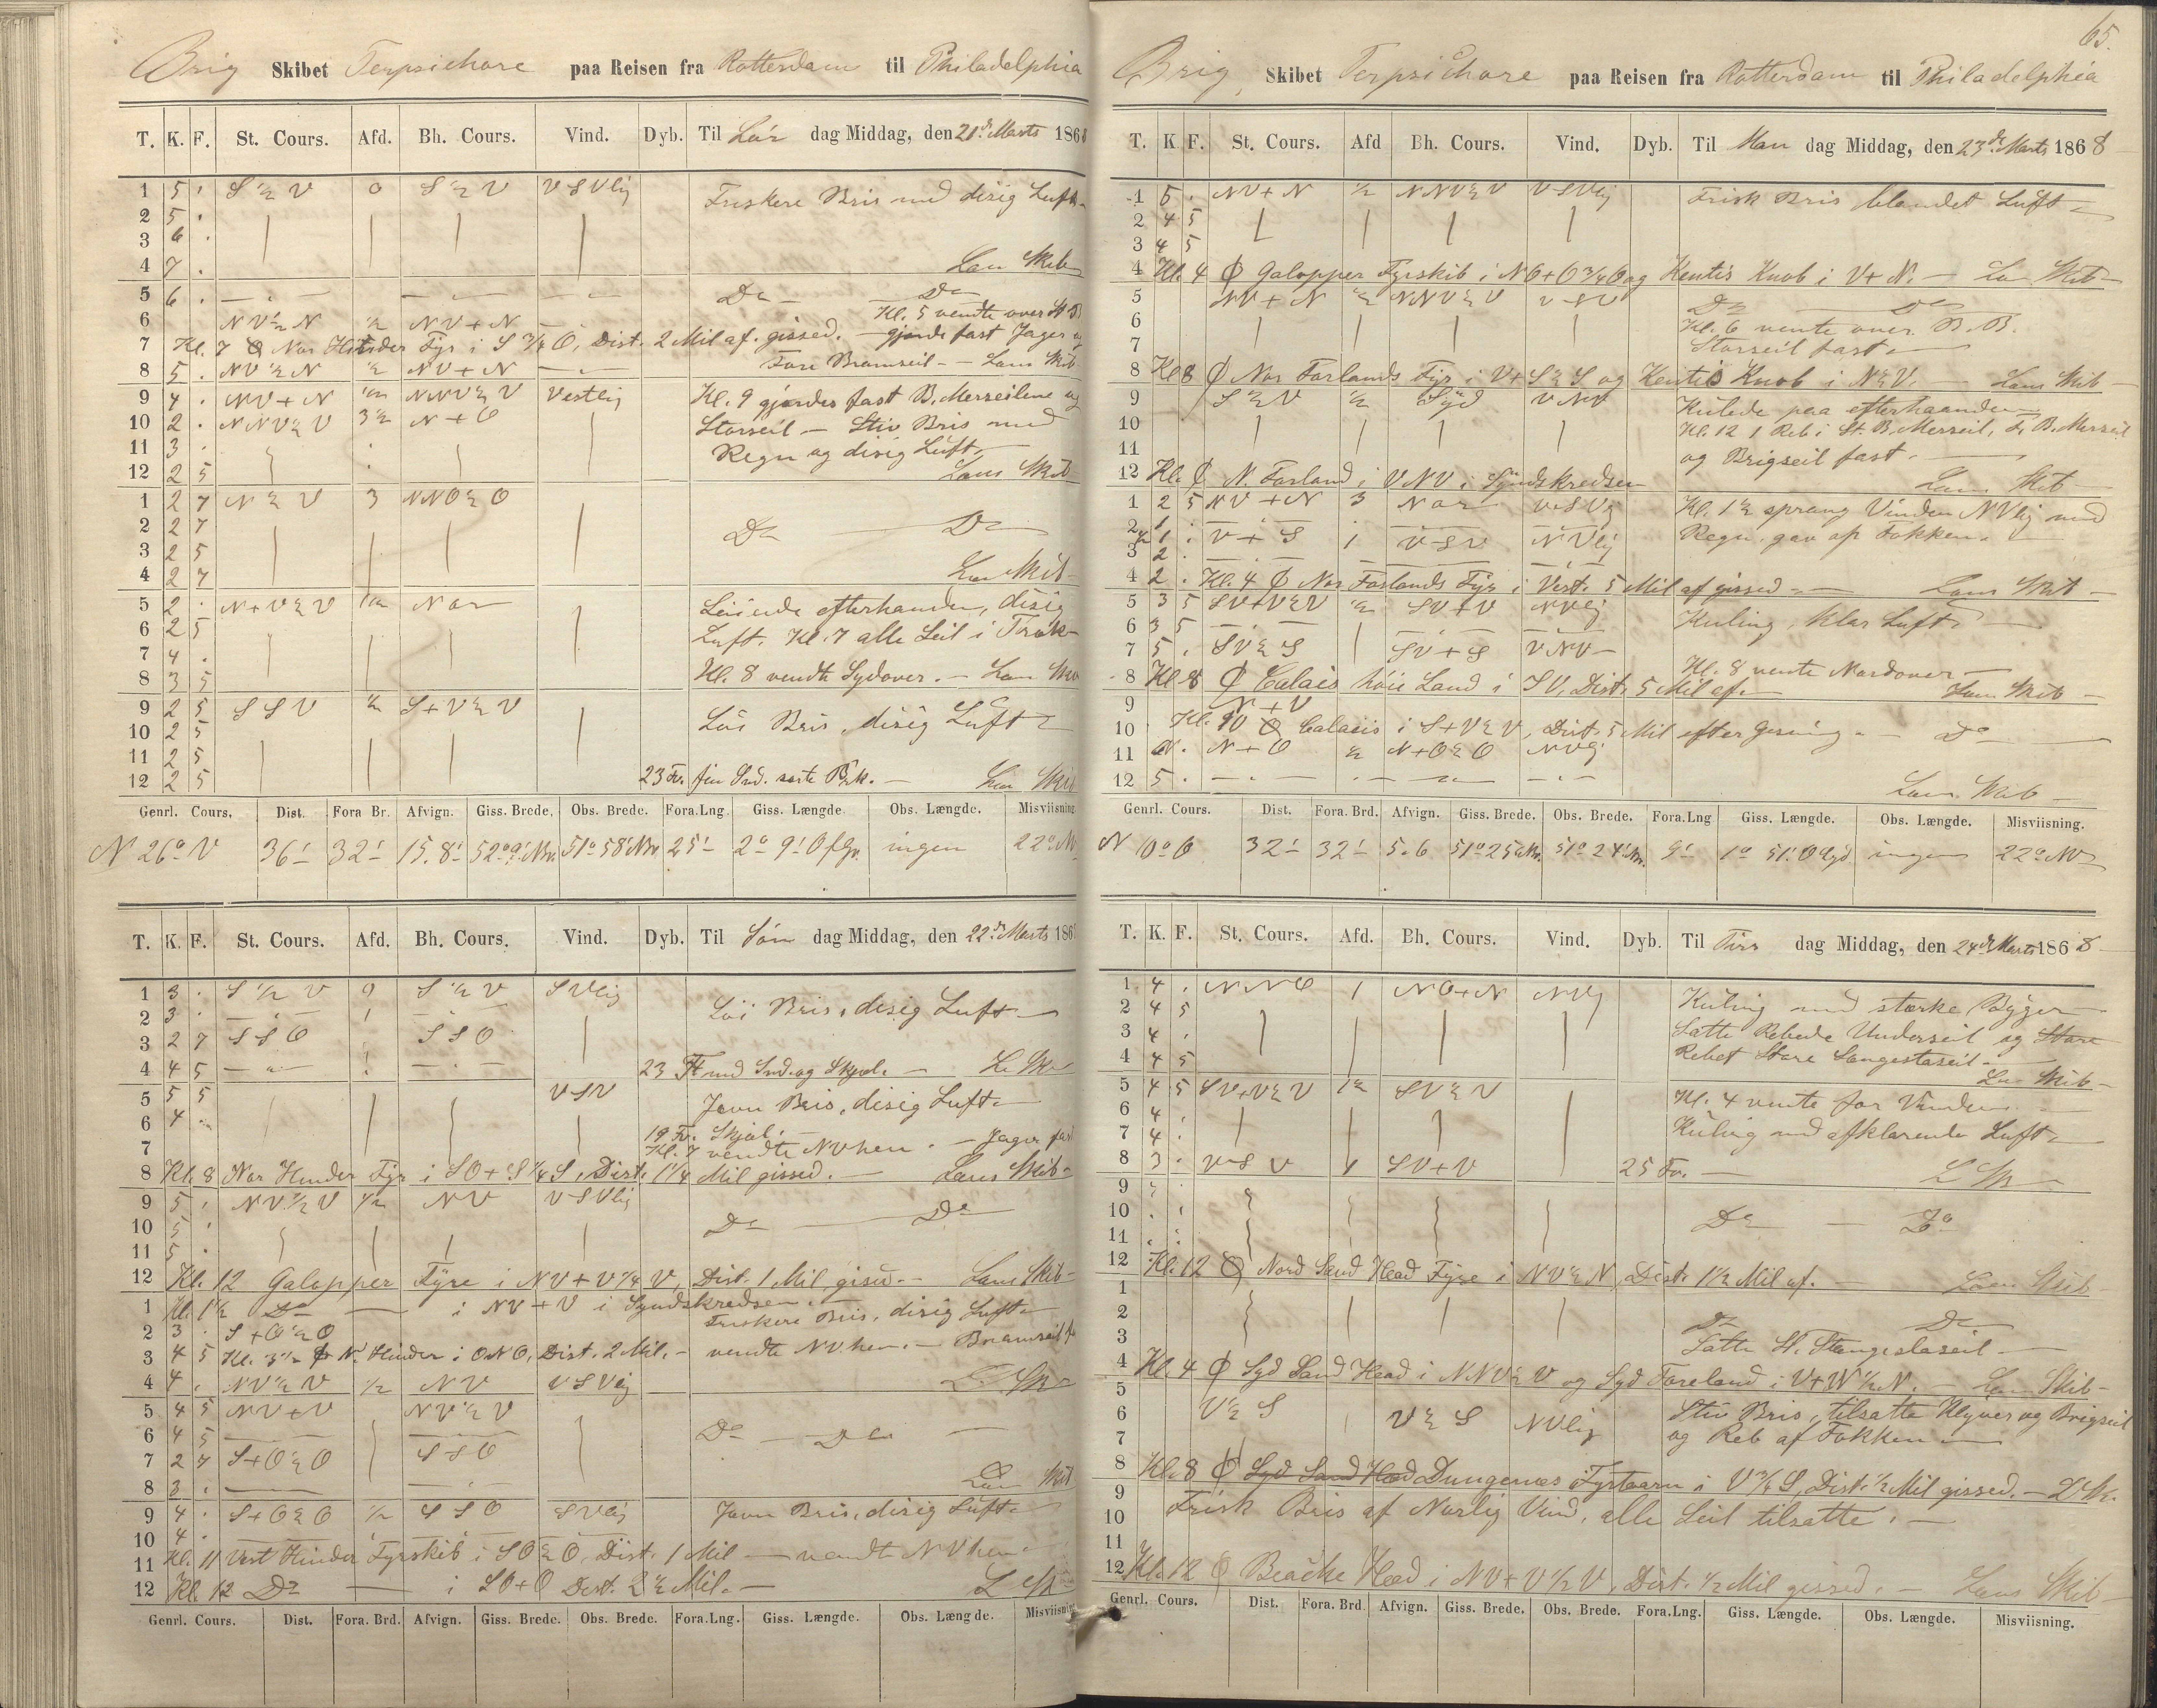 Brig Skibet Terpsichore paa Reisen fra Rotterdam til Philadelphia
T. K. F. St. Cours. Afd. Bh. Cours. Vind. Dyb. Til Lör dag Middag, den 21de Marts 1868
1 5 . S ½ V 0 S ½ V VSVlig Friskere Bris med disig Luft
2 5 .
3 6 .
4 7 . Læns Skib
5 6 . Do Do
6 NV ½ N ½ NV+N Kl. 5 vendte over St B
7 Kl. 7 Nor Hinder Fyr i S ¾ O, Dist. 2 Mil af gissed. gjorde fast Jager og
8 5 . NV ½ N ½ NV+N Fore Bramseil - Læns Skib
9 4 . NV+N NNV ½ V Vestlig Kl. 9 gjordes fast B. Merseilene og
10 2 . NNV ½ V 3½ N+O Storseil - Stiv Bris med
11 3 . Regn og disig Luft
12 2 5 Læns Skib
1 2 7 N ½ V 3 NNO ½ O
2 2 7 Do Do
3 2 5
4 2 7 Læns Skib
5 2 . N+V ½ V Nor Löiende efterhanden, disig
6 2 5 Luft. Kl. 7 alle Seil i Træk
7 4 .
8 3 5 Kl. 8 vendte Sydover. - Læns Skib
9 2 5 SSV ½ S+V ½ V
10 2 5 Löi Bris, disig Luft
11 2 5
12 2 5 23 Fv. fin Snd. sorte Prk. Læns Skib
Genrl. Cours. Dist. Fora Br. Afvign. Giss. Brede. Obs. Brede. Fora.Lng. Giss. Længde. Obs. Længde. Misviisning
N 26° V 36' 32' 15.8' 52° 9' Nr. 51° 58' Nr. 25' 2° 9' O f Gr. ingen 22° NV
T. K. F. St. Cours. Afd. Bh. Cours. Vind. Dyb. Til Sön dag Middag, den 22de Marts 186
1 3 . S ½ V 0 S ½ V SVlig
2 3 . Löi Bris, disig Luft
3 2 7 SSO SSO
4 4 5 23 Ft med Snd. og Skjæl. L. Sk
5 5 5 VSV Jevn Bris, disig Luft
6 4 .
7 19 Fv. Skjæl. Kl. 7 vendte NV hen. - Jager fast
8 Kl. 8 Nor Hinder Fyr i SO+S ¼ S, Dist. 1¼ Mil gissed. - Læns Skib
9 5 . NV ½ V ½ NV VSVlig
10 5 . Do Do
11 5 .
12 Kl. 12 Galopper Fyre i NV+V ¼ V, Dist. 1 Mil gised. - Læns Skib
1 Kl. 1½ Do i NV+V i Syndskredsen.
2 3 . S+O ½ O Friskere Bris, disig Luft
3 4 5 Kl. 3½ N. Hinder i ONO, Dist. 2 Mil. - vendte NV hen. - Bramseil
4 4 . NV ½ V ½ NV VSVlig L. Sk
5 4 5 NV+V NV ½ V
6 4 5 Do Do
7 2 7 S+O ½ O SSO
8 3 . Læns Skib
9 4 . S+O ½ O ½ SSO SVlig Jevn Bris, disig Luft
10 4 .
11 Kl. 11 Vest Hinder Fyrskib i SO ½ O, Dist. 1 Mil - vendte NV hen
12 Kl. 12 Do i SO+O Dist. 2½ Mil. - L Sk
Genrl. Cours. Dist. Fora. Brd. Afvign. Giss. Brede. Obs. Brede. Fora.Lng. Giss. Længde. Obs. Længde. Misviisning
65.
Brig, Skibet Terpsichore paa Reisen fra Rotterdam til Philadelphia
T. K F. St. Cours. Afd Bh. Cours. Vind. Dyb. Til Man dag Middag, den 23de Marts 1868
1 5 . NV+N ½ NNV ½ V VSVlig Frisk Bris blandet Luft
2 4 5
3 4 5
4 Kl. 4 Galopper Fyrskib i NO+O ¾ O og Kentis Knob i V+N. - Læns Skib
5 NV+N ½ NNV ½ V VSV Do Do
6 Kl. 6 vente over B.B.
7 Storseil fast
8 Kl 8 Nor Forlands Fyr i V+S ½ S og Kentis Knob i N ½ V. Læns Skib
9 S ½ V ½ Syd VNV Kulede paa efterhaanden
10 Kl. 12 1 Reb i St. B. Merseil, F. B. Merseil
11 og Brigseil fast.
12 Kl. N. Forland i VNV i Syndskredsen Læns Skib
1 2 5 NV+N 3 Nor VSVlig Kl. 1½ sprang Vinden NVlig med
2 1 . V+S 1 VSV NVlig Regn. gav op Fokken.
3 2 .
4 2 . Kl. 4 Nor Forlands Fyr i Vest. 5 Mil af gissed - Læns Skib
5 3 5 SV+V ½ V ½ SV+V NVlig
6 3 5 Kuling, klar Luft
7 5 . SV ½ S SV+S VNV
8 Kl 8 Calais höie Land i SV, Dist. 5 Mil af. Kl. 8 vente Nordover Læns Skib
9 N+V
10 Kl. 10 Calais i S+V ½ V, Dist. 5 Mil efter Gisning - Do
11 N+O ½ N+O ½ O NVlig
12 5 . Læns Skib
Genrl. Cours. Dist. Fora. Brd. Afvign. Giss. Brede. Obs. Brede. Fora.Lng Giss. Længde. Obs. Længde. Misviisning.
N 10° O 32' 32' 5.6 51° 25' Nr. 51° 24' Nr. 9' 1° 51' O Gr. ingen 22° NV
T. K. F. St. Cours. Afd. Bh. Cours. Vind. Dyb. Til Tirs dag Middag, den 24de Marts 1868
1 4 . NNO 1 NO+N NVlig Kuling med stærke Byger
2 4 5 Satte Rebede Underseil og Store
3 4 . Rebet Store Stangestaseil
4 4 5 Læns Skib
5 4 5 SV+V ½ V 1½ SV ½ V Kl. 4 vente for Vinden
6 4 . Kuling med afklarende Luft
7 4 .
8 3 . VSV SV+V 25 Fv. L Sk
9
10 Do Do
11
12 Kl. 12 Nord Sand Head Fyre i NV ½ N, Dist. 1½ Mil af. Læns Skib
1
2 Do Do
3 Satte St. Stangestaseil
4 Kl. 4 Syd Sand Head i NNV ½ V og Syd Foreland i V+N ½ N. Læns Skib
5
6 V ½ S V ½ S NVlig Stiv Bris, tilsatte Klyver og Brigseil
7 og Reb af Fokken
8 Kl. 8 Syd Sand Head Dungenæs Fyrtaarn i V ¾ S, Dist. ½ Mil gissed. - L Sk.
9
10 Frisk Bris af Norlig Vind, alle Seil tilsatte.
11
12 Kl. 12 Beache Head i NV+V ½ V, Dist. ½ Mil gissed. - Læns Skib
Genrl. Cours. Dist. Fora. Brd. Afvign. Giss. Brede. Obs. Brede. Fora.Lng. Giss. Længde. Obs. Længde. Misviisning.